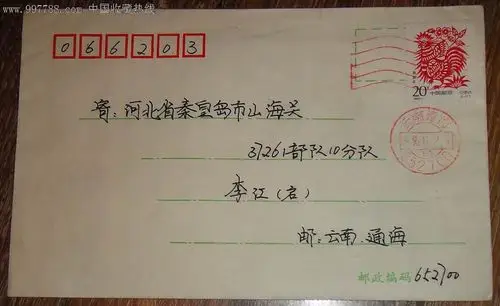 www.997788.com 中国收藏热线
066203
20分
中国邮政
寄:河北省秦皇岛市山海关
37261部队10分队
李江(启)
邮:云南.通海
邮政编码 652700